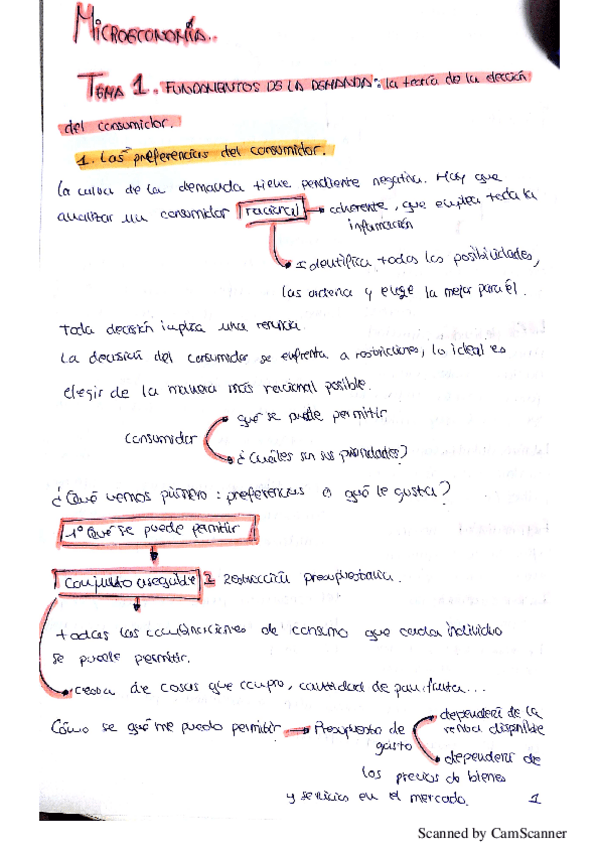 MICROECONOMÍA..
TEMA 1. FUNDAMENTOS DE LA DEMANDA: la teoría de la elección
del consumidor.
1. Las preferencias del consumidor.
La curva de la demanda tiene pendiente negativa. Hay que
analizar un consumidor racional → coherente, que emplea toda la
información
Identifica todas las posibilidades,
las ordena y elige la mejor para él.
Toda decisión implica una renuncia.
La decisión del consumidor se enfrenta a restricciones, lo ideal es
elegir de la manera más racional posible.
qué se puede permitir
consumidor
¿Cuáles son sus prioridades?
¿Qué vemos primero: preferencias o qué le gusta?
1º Qué se puede permitir
Conjunto asequible restricción presupuestaria.
todas las combinaciones de consumo que cada individuo
se puede permitir.
de cosas que compro, cantidad de pan, fruta...
Cómo se qué me puedo permitir → Presupuesto de
gasto
dependerá de la
renta disponible
dependerá de
los precios de bienes
y servicios en el mercado.
1
Scanned by CamScanner